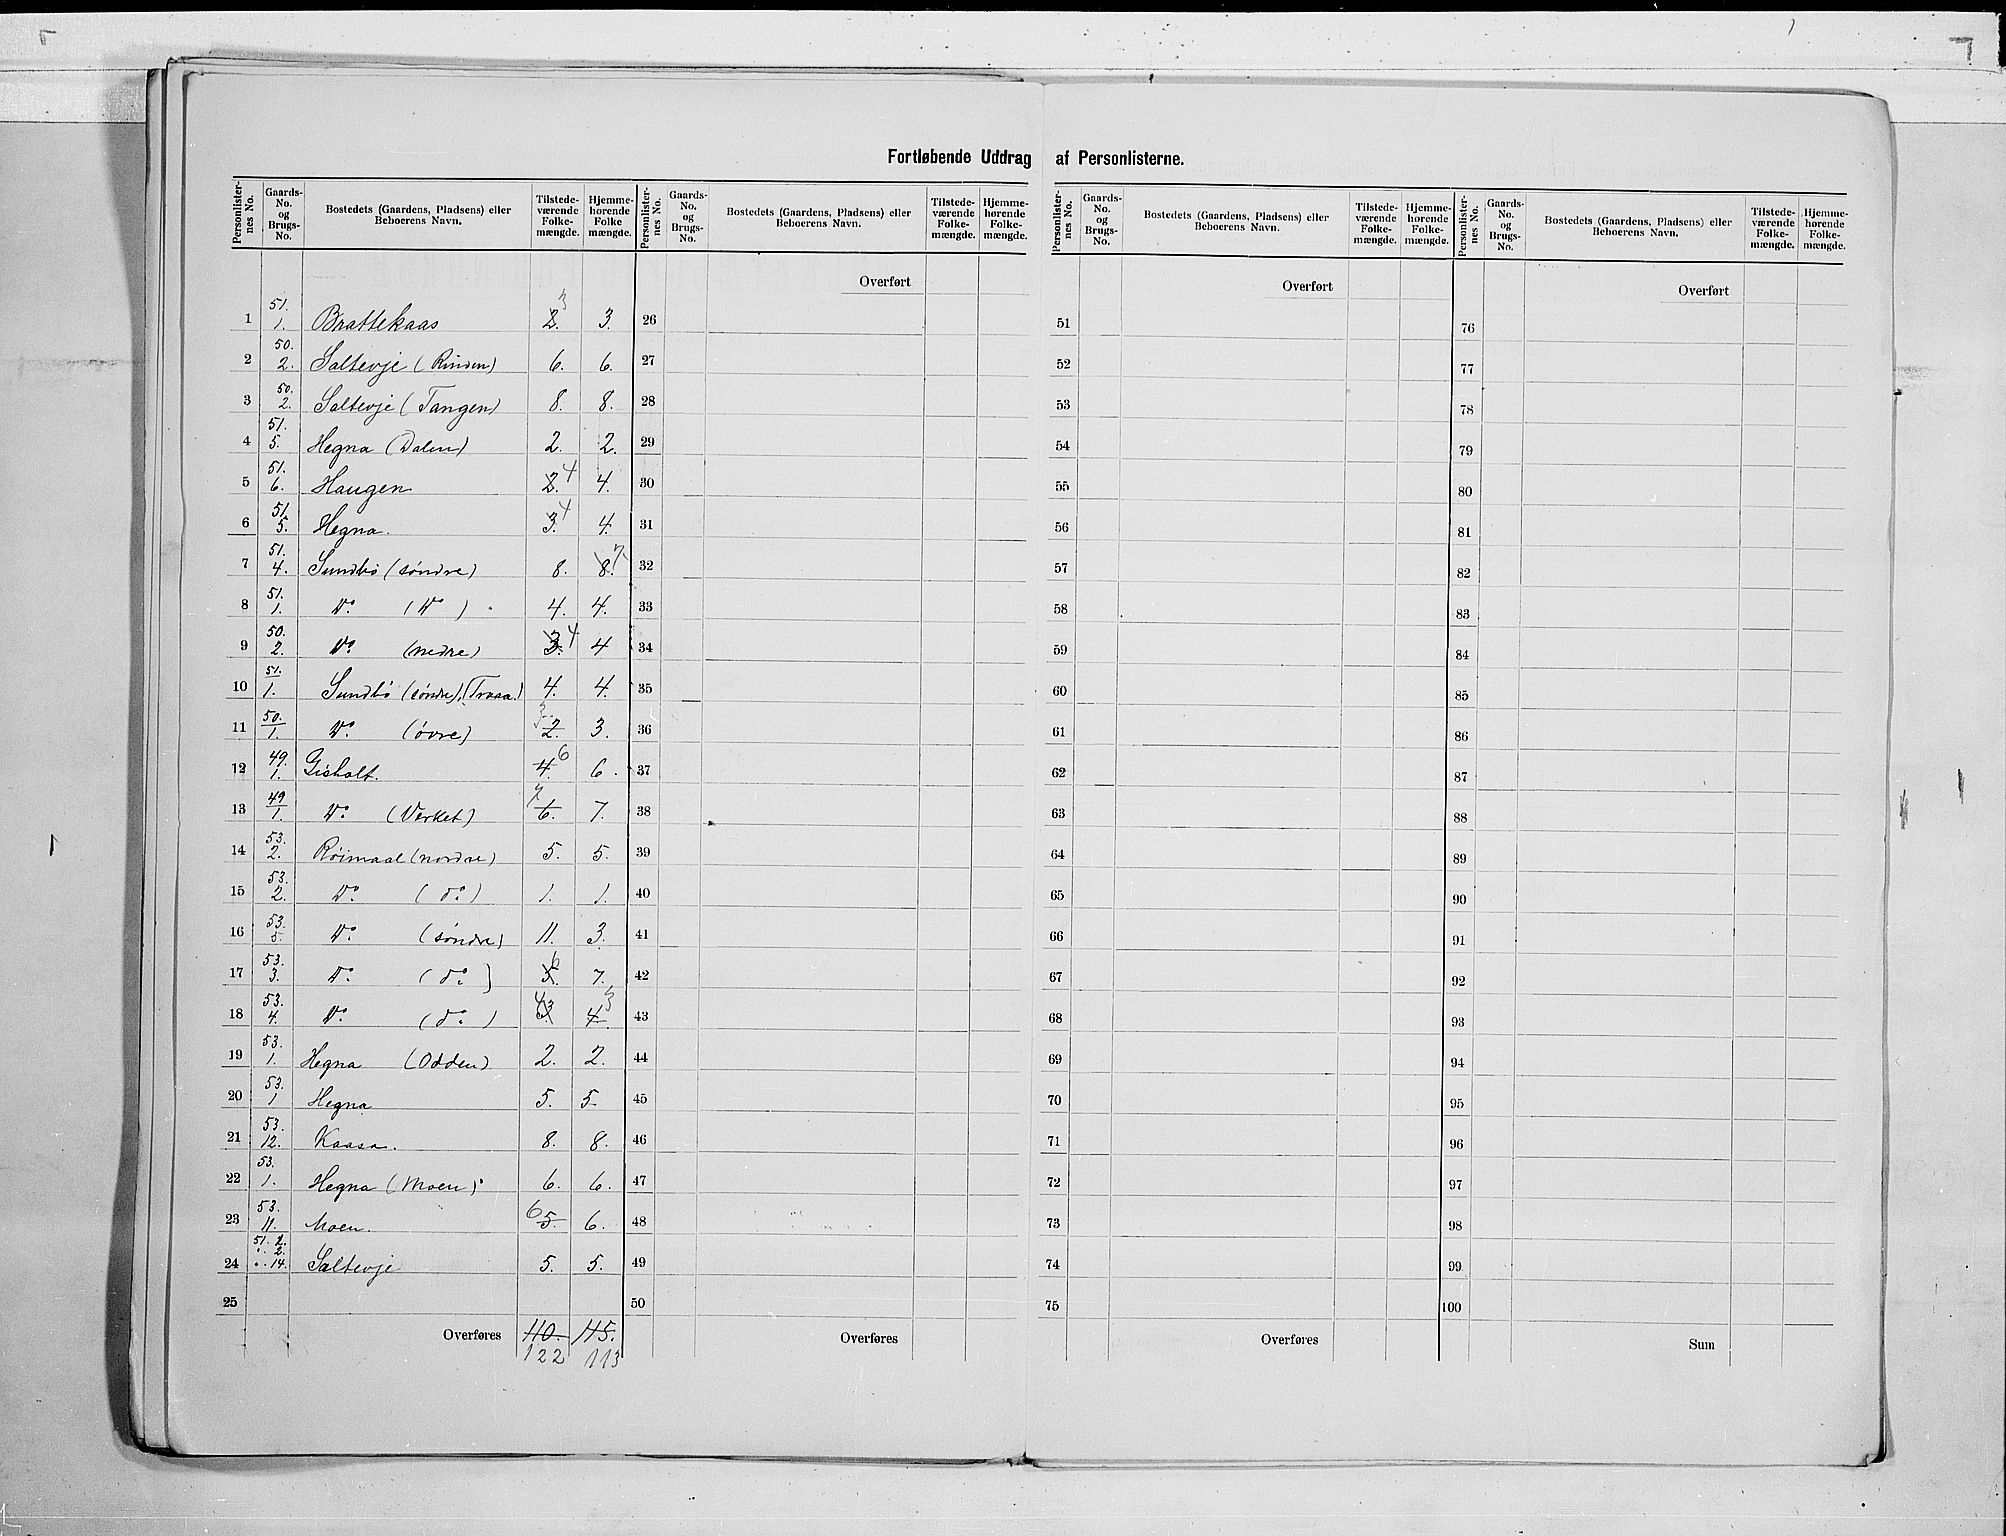 Fortløbende Uddrag af Personlisterne.
Personlisternes No. Gaards-No. og Brugs-No. Bostedets (Gaardens, Pladsens) eller Beboerens Navn. Tilstedeværende Folkemængde. Hjemmehørende Folkemængde.
Personlisternes No. Gaards-No. og Brugs-No. Bostedets (Gaardens, Pladsens) eller Beboerens Navn. Tilstedeværende Folkemængde. Hjemmehørende Folkemængde.
Personlisternes No. Gaards-No. og Brugs-No. Bostedets (Gaardens, Pladsens) eller Beboerens Navn. Tilstedeværende Folkemængde. Hjemmehørende Folkemængde.
Personlisternes No. Gaards-No. og Brugs-No. Bostedets (Gaardens, Pladsens) eller Beboerens Navn. Tilstedeværende Folkemængde. Hjemmehørende Folkemængde.
Overført Overført Overført
1 51. 1. Brattekaas 2. 3 3. 26 51 76
2 50. 2. Saltevje (Rinden) 6. 6. 27 52 77
3 50. 2. Saltevje (Tangen) 8. 8. 28 53 78
4 51. 5. Hegna (Dalen) 2. 2. 29 54 79
5 51. 6. Haugen 2. 4 4. 30 55 80
6 51. 5. Hegna. 3. 4 4. 31 56 81
7 51. 4. Sundbö (söndre) 8. 8. 7. 32 57 82
8 51. 1. Do. (Do) 4. 4. 33 58 83
9 50. 2. Do. (nedre) 3. 4 4 34 59 84
10 51. 1. Sundbö (söndre), (Traaa.) 4. 4. 35 60 85
11 50. 1. Do. (övre) 3 2. 3. 36 61 86
12 49. 1. Gisholt. 4. 6 6. 37 62 87
13 49 1. Do. (Verket) 7 6. 7. 38 63 88
14 53. 2. Röimaal (nordre) 5. 5. 39 64 89
15 53. 2. Do. (do.) 1. 1. 40 65 90
16 53. 5. Do. (söndre) 11. 3. 41 66 91
17 53. 3. Do. (do.) 5. 6 7. 42 67 92
18 53. 4. Do. (do.) 4 3. 4. 3 43 68 93
19 53. 1. Hegna (Odden) 2. 2. 44 69 94
20 53. 1 Hegna 5. 5. 45 70 95
21 53. 12. Kaasa. 8. 8. 46 71 96
22 53. 1. Hegna (Moen) 6. 6. 47 72 97
23 53. 11. Moen. 6 5. 6. 48 73 98
24 51. 2. " 2. " 14. Saltevje 5. 5. 49 74 99
25 50 75 100
Overføres 110. 115. Overføres Overføres Sum
122 113